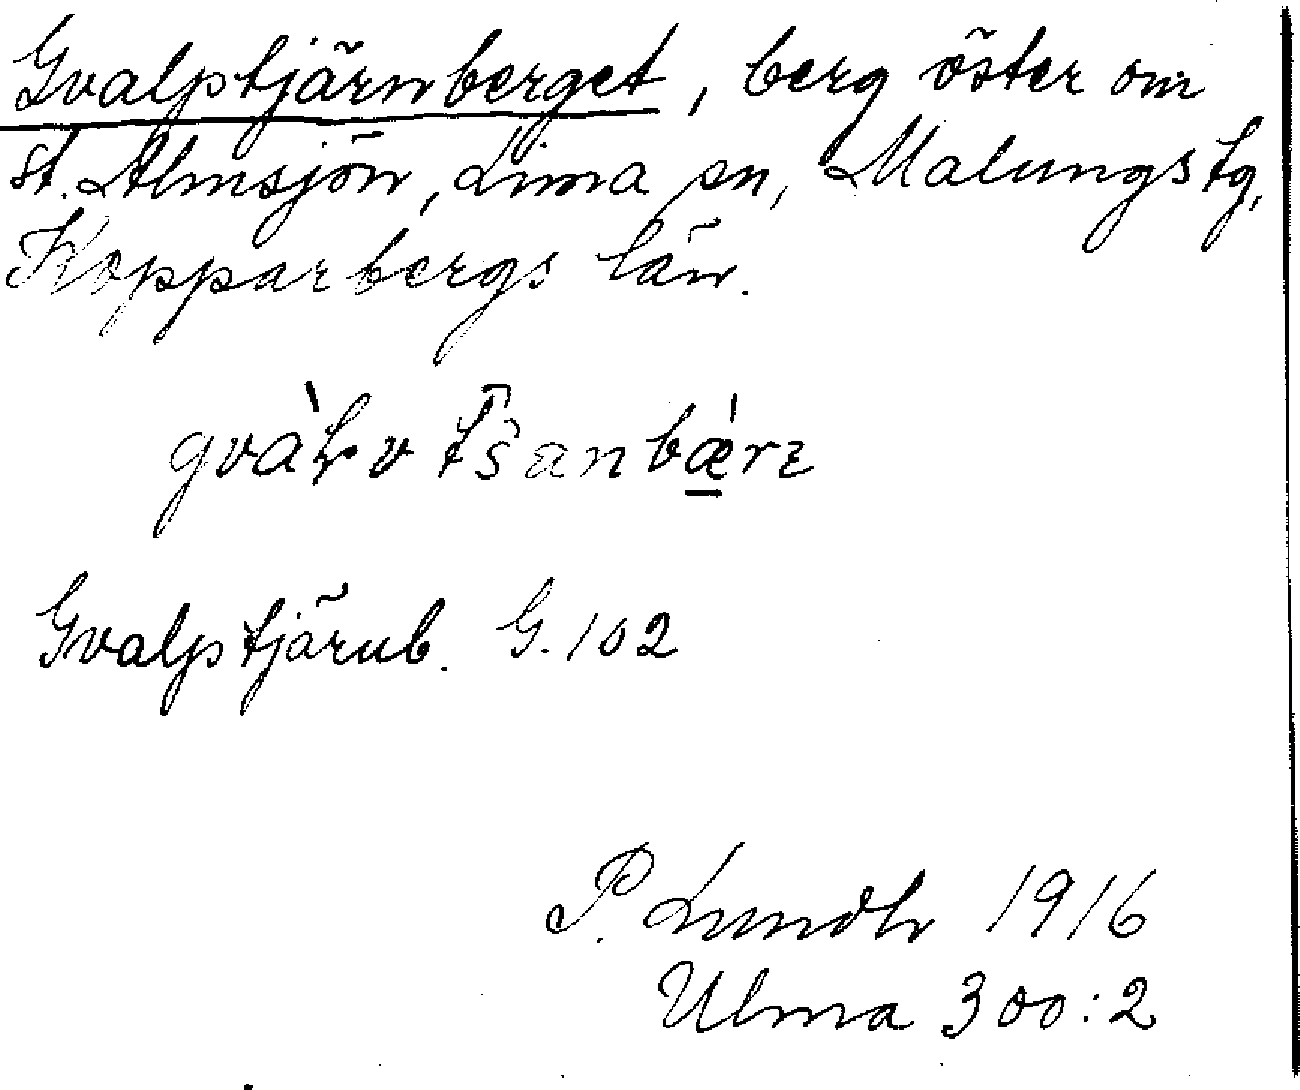 Gvalptjärnberget, berg öster om
st. Almsjön, Lima sn, Malungs tg,
Kopparbergs län.
Gvalptjärnb. G. 102
P. Lundh 1916
Ulma 300:2